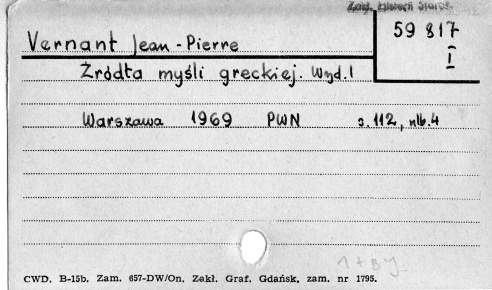 Zakł. Historii Staroż.
59 817
I
Vernant Jean-Pierre
Źródła myśli greckiej. Wyd. 1
Warszawa 1969 PWN s. 112, nlb. 4
CWD. B-15b. Zam. 657-DW/On. Zakł. Graf. Gdańsk, zam. nr 1795.